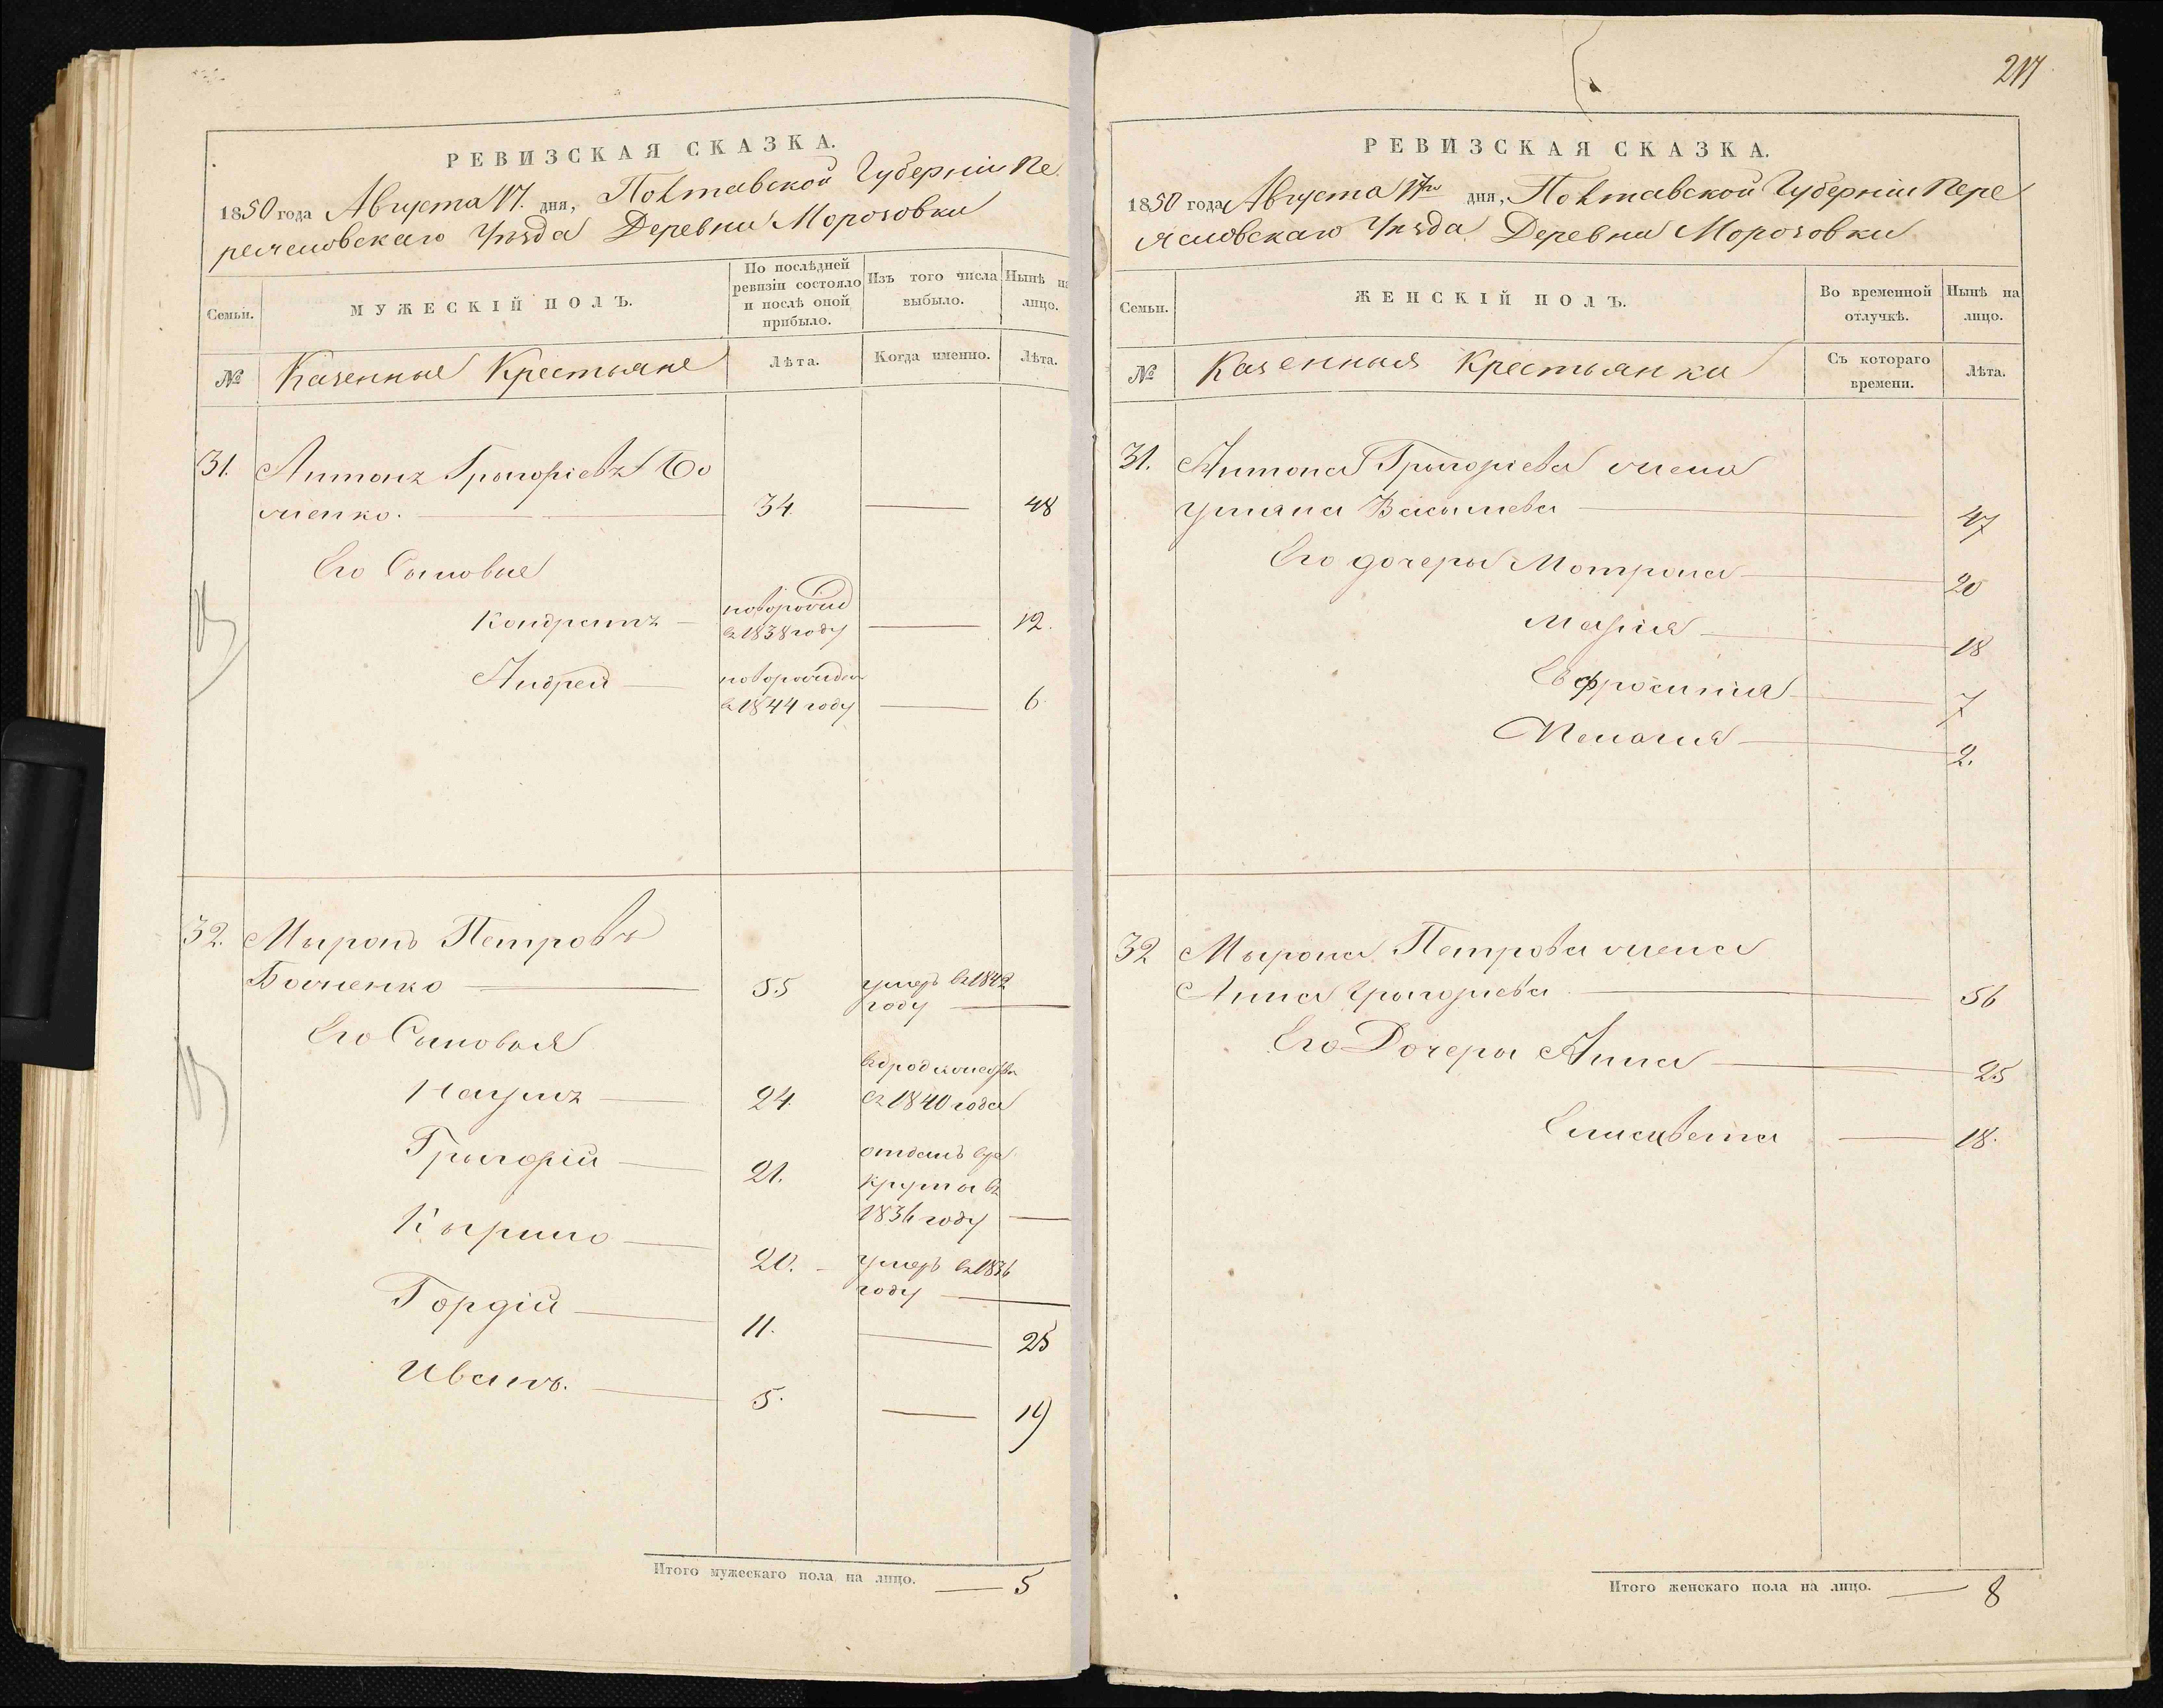 РЕВИЗСКАЯ СКАЗКА.
1850 года Августа 17. дня, Полтавской Губерніи Пе
реяславскаго Уѣзда Деревни Морозовки
Семьи.
МУЖЕСКІЙ ПОЛЪ.
По послѣдней
ревизіи состояло
и послѣ оной
прибыло.
Изъ того числа
выбыло.
Нынѣ на
лицо.
№
Казенные Крестьяне
Лѣта.
Когда именно.
Лѣта.
31. Антонъ Григоріевъ Бо
женко. 34 48
Его Сыновье
Кондратъ новорожд 12.
въ 1838 году
Андрей новорожден 6
въ 1844 году
32. Миронъ Петровъ
Боженко 55 умеръ въ 1842
году
Его Сыновья
24. съ 1840 года
Григорій 21. отданъ въ ре
круты въ
1836 году
Кирило 20. умеръ въ 1836
году
Гордій 11. 25
Иванъ. 5. 19
Итого мужескаго пола на лицо. 5
217
РЕВИЗСКАЯ СКАЗКА.
1850 года Августа 17го дня, Полтавской Губерніи Пере
яславскаго Уѣзда Деревни Морозовки
Семьи.
ЖЕНСКІЙ ПОЛЪ.
Во временной
отлучкѣ.
Нынѣ на
лицо.
№
Казенныя Крестьянки
Съ котораго
времени.
Лѣта.
31. Антона Григоріева жена
Ульяна Васильева 47
Его дочеры Мотрона 20
Марія 18
Евфросинія 7
Пелагия 2.
32 Мирона Петрова жена
Анна Григориева 56
Его Дочеры Анна 25
Елисавета 18.
Итого женскаго пола на лицо. 8